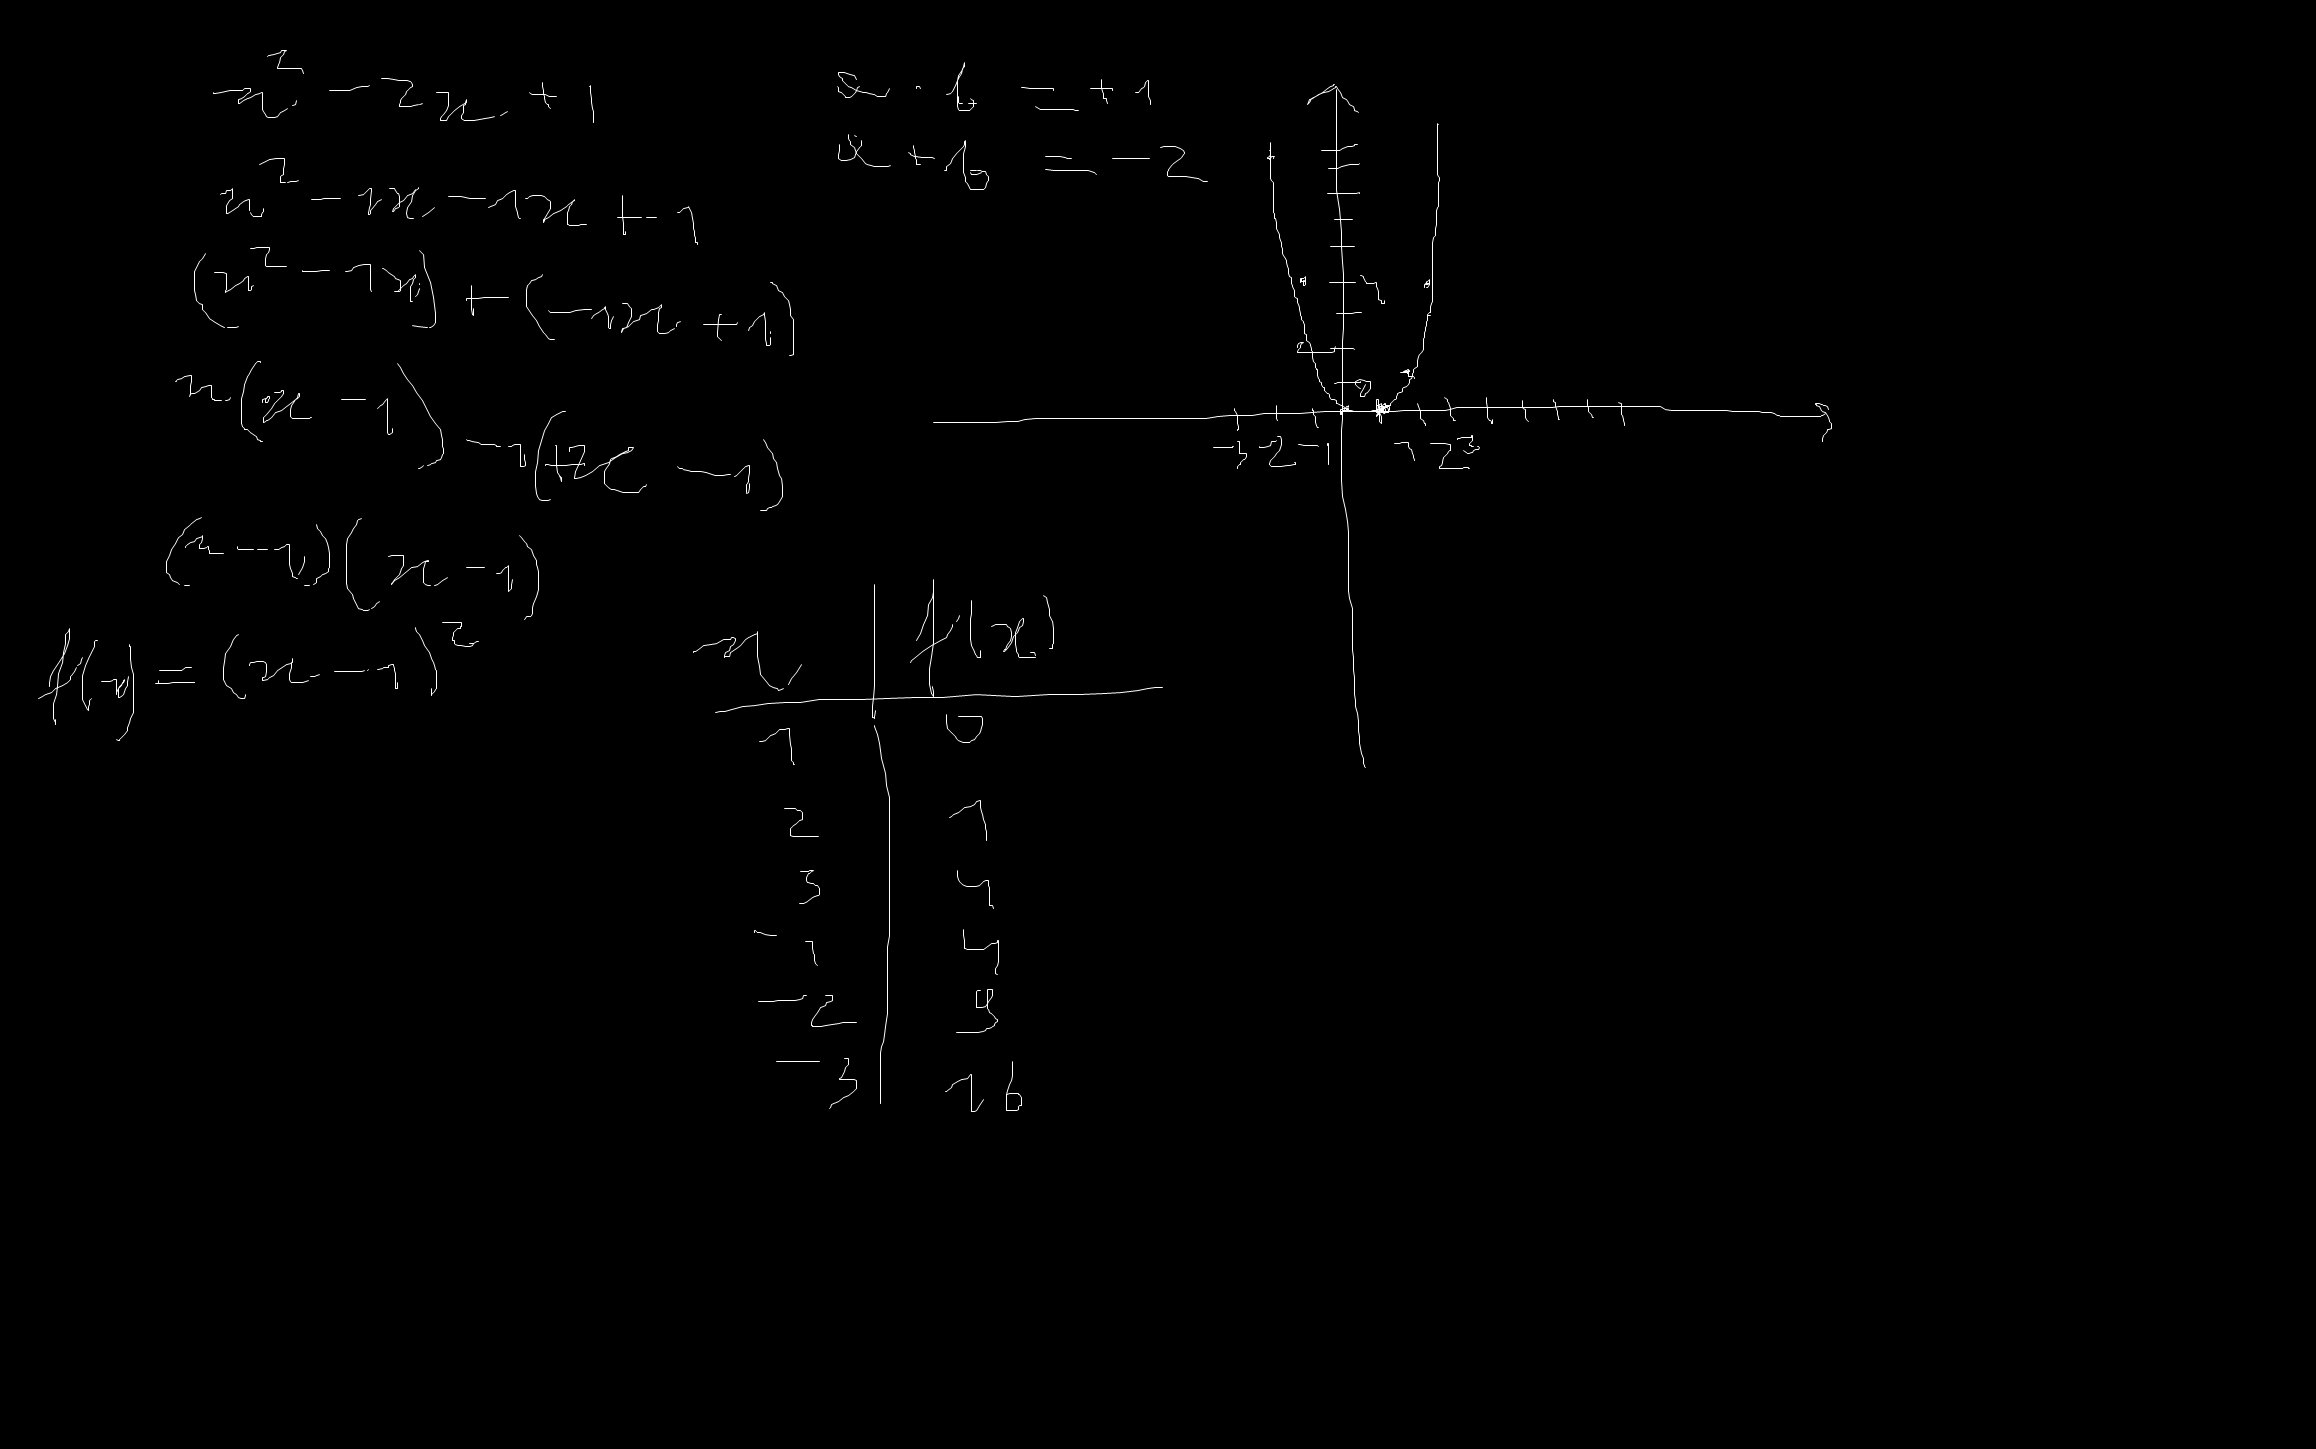 x² - 2x + 1
x² - 1x - 1x + 1
(x² - 1x) + (-1x + 1)
x(x - 1) - 1(+x - 1)
(x - 1)(x - 1)
f(x) = (x - 1)²
a · b = +1
a + b = -2
x | f(x)
1 | 0
2 | 1
3 | 4
-1 | 4
-2 | 9
-3 | 16
4
2
-3 -2 -1 1 2 3